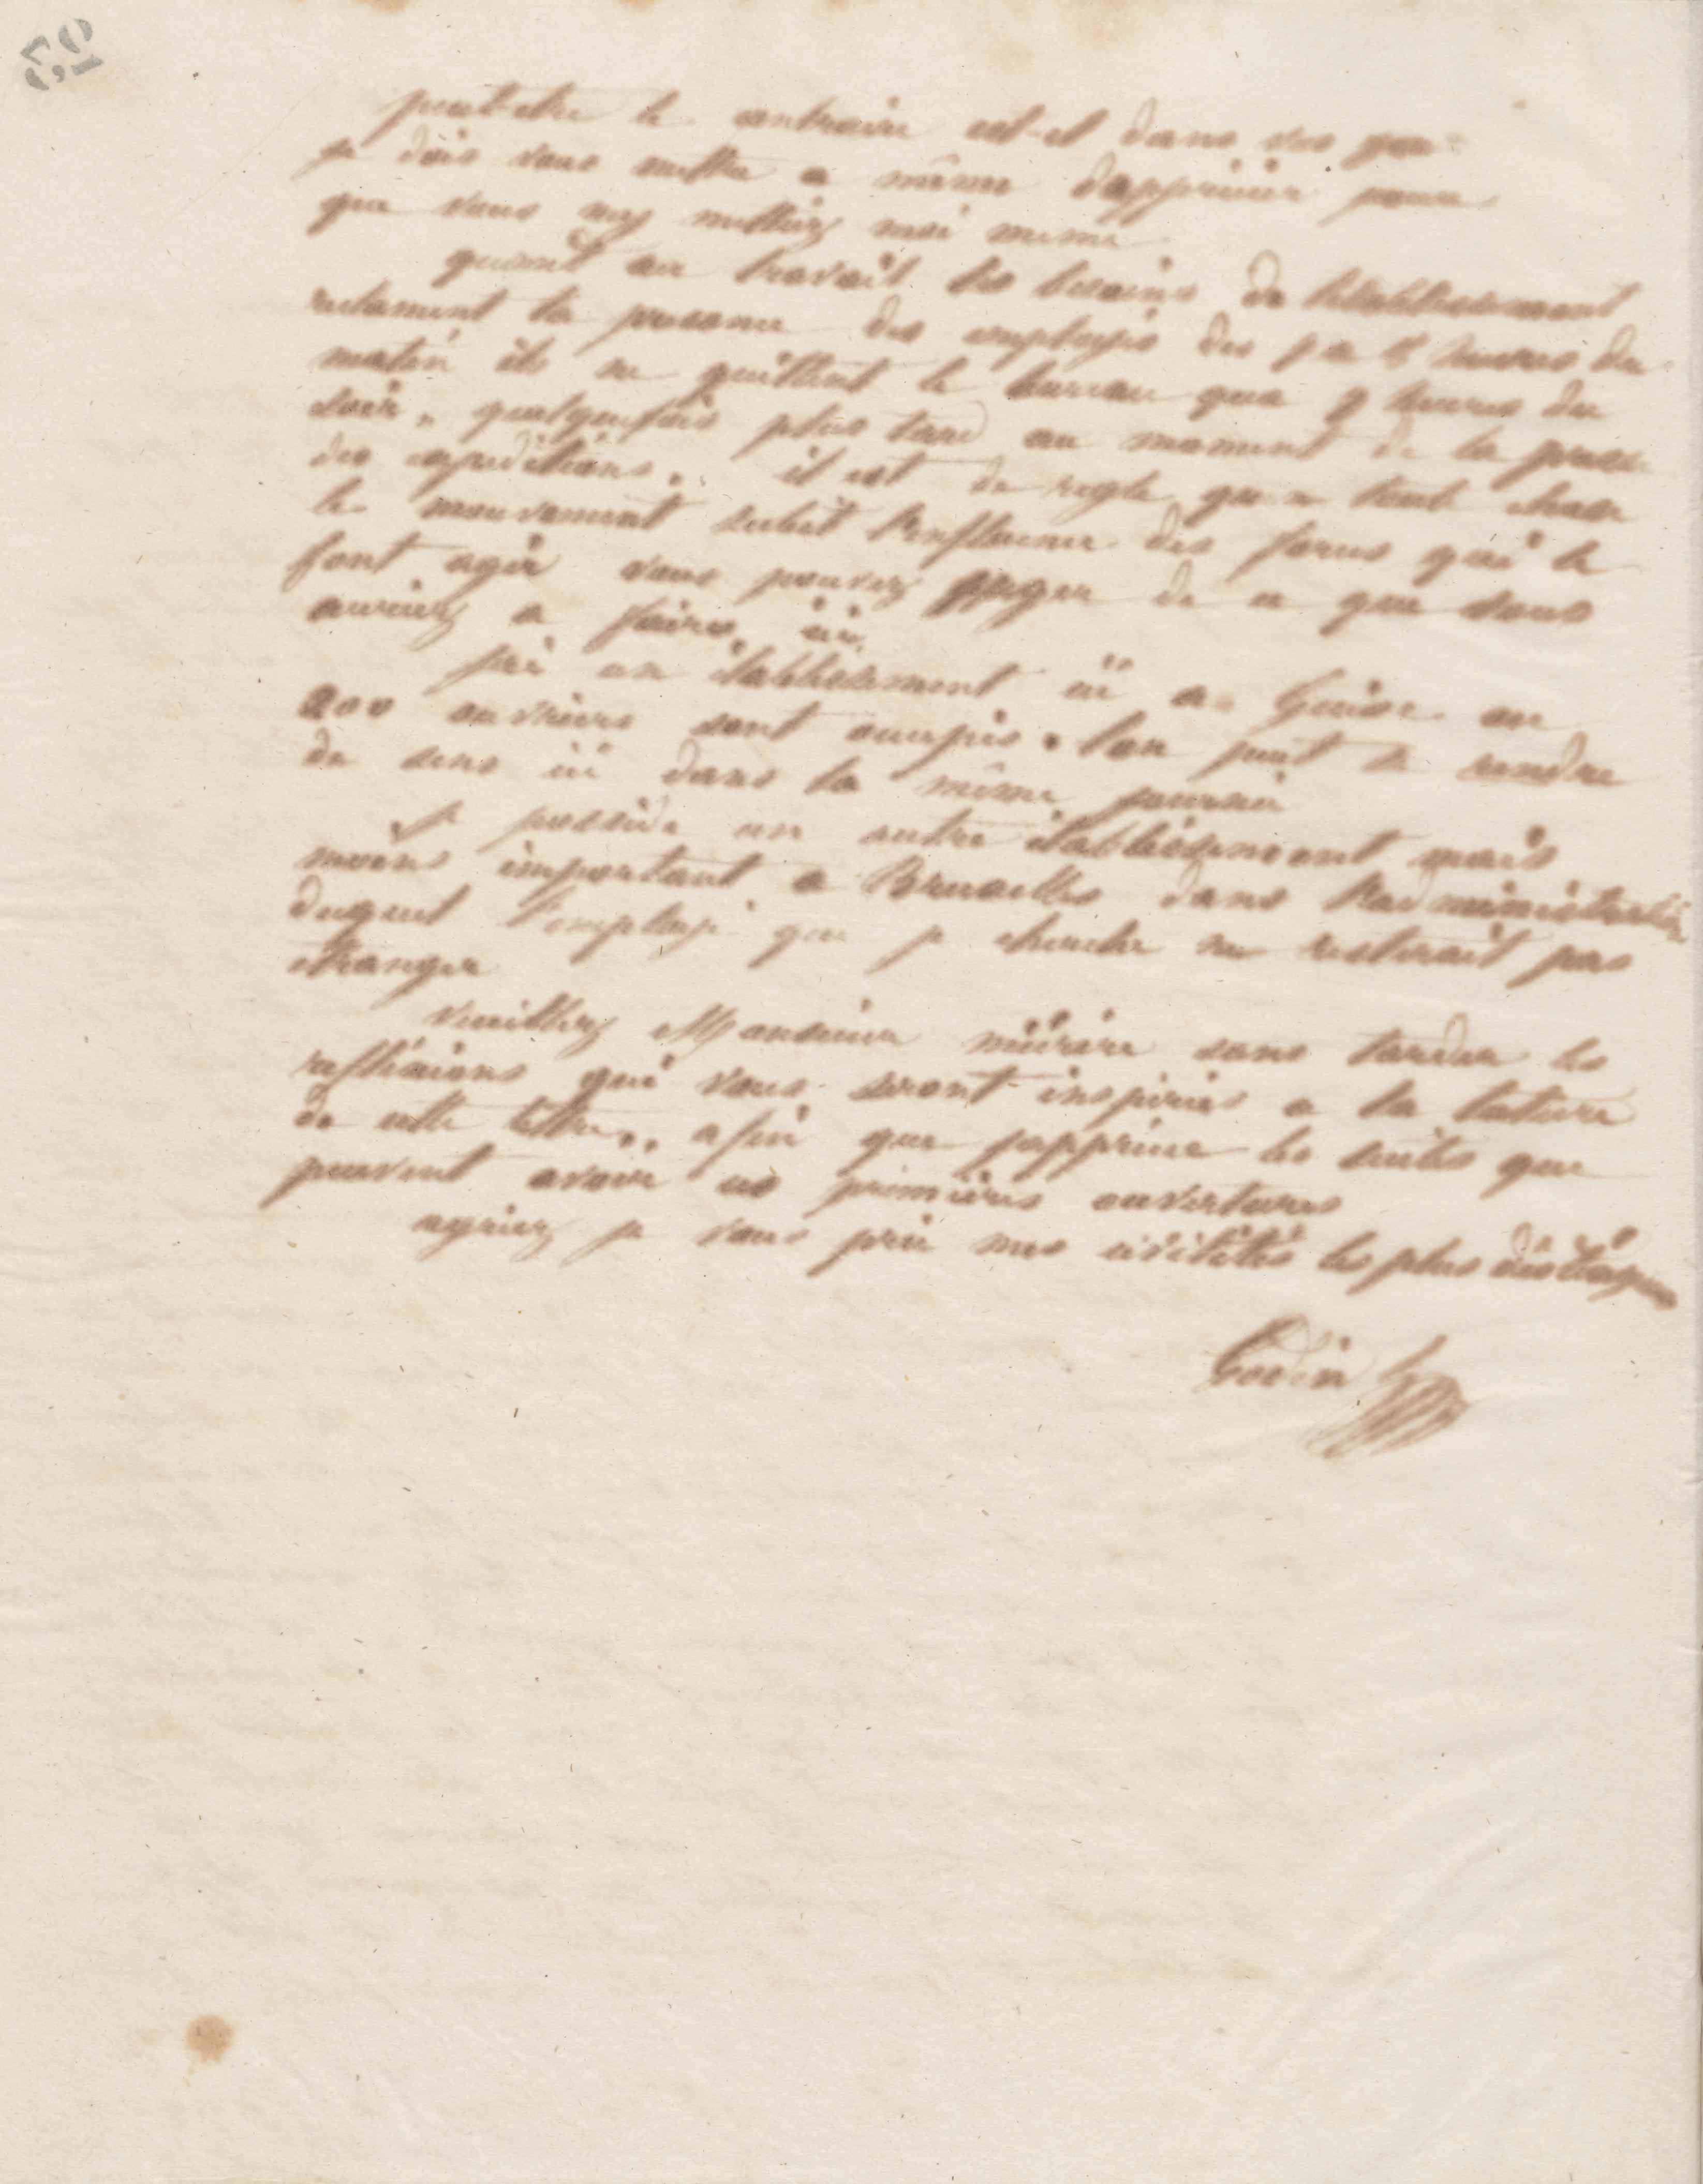 peut etre le contraire est-il dans vos
je dois vous mettre a même dapprécier pour
que vous my mettiez moi meme
quant au travail les besoins de letablissement
reclament la presence des employés des 7 a 8 heures du
matin ils ne quittent le bureau qua 9 heures du
soir, quelquefois plus tard au moment de la presse
des expeditions. il est de regle quen toute chose
le mouvement subit l'influence des forces qui le
font agir vous pouvez juger de ce que vous
auriez a faire ici.
jai un établissement ici a Guise ou
200 ouvriers sont occupés. lon peut se rendre
de sens ici dans la même journée
Je possède un autre établissement mais
moins important a Bruxelles dans l'administration
duquel l'employé que je cherche ne resterait pas
étranger
veuillez Monsieur mûrir sans tarder les
reflexions qui vous seront inspirées a la lecture
de cette lettre.. afin que japprecie les suites que
peuvent avoir ces premières ouvertures
agréez je vous prie mes civilités les plus distinguées
Godin